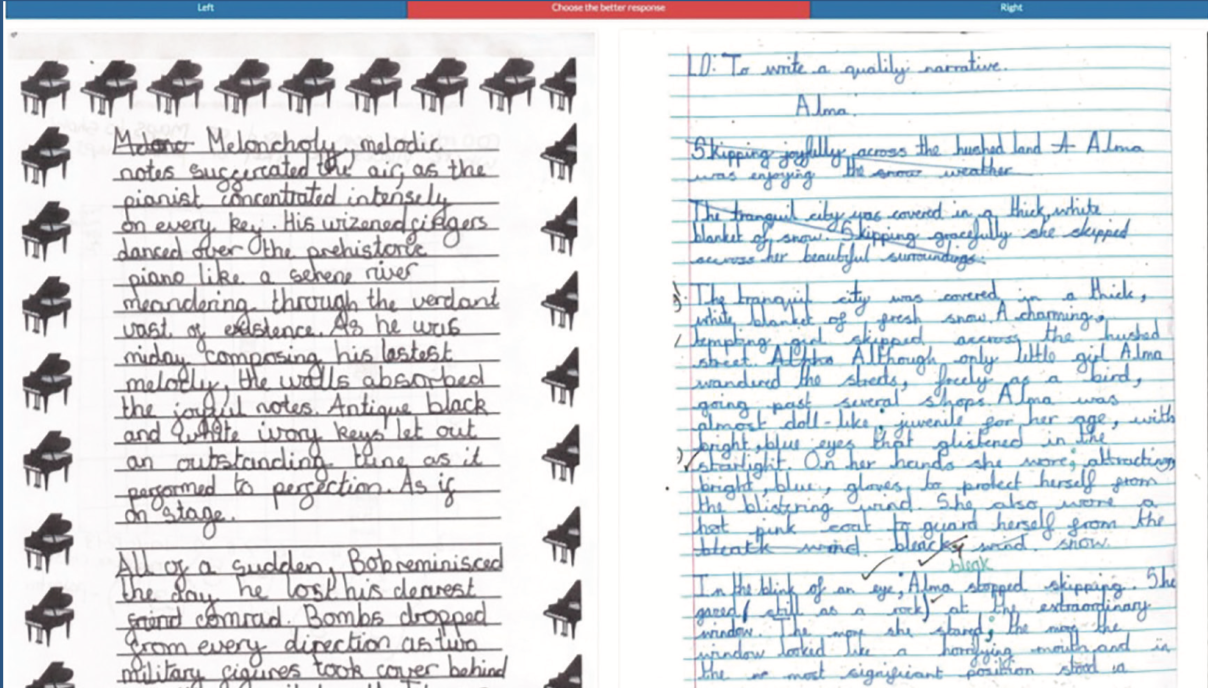 Left
Choose the better response
Right
Melano Meloncholy, melodic
notes suggercated the air, as the
pianist concentrated intensely
on every key. His wizened fifgers
danced over the prehistoric
piano like a serene river
meandering through the verdant
vast of existence. As he was
miday composing his lastest
melody, the walls absorbed
the joyful notes. Antique black
and white ivory keys let out
an outstanding tune as it
performed to perfection. As if
on stage.
All of a sudden, Bob reminisced
the day, he lost his dearest
comrad. Bombs dropped
from every direction as two
military figures took cover behind
L.O: To write a quality narrative.
Alma.
Skipping joyfully across the hushed land A Alma
was enjoying the snow weather
The tranquil city was covered in a thick, white
blanket of snow. Skipping gracefully she skipped
accross her beautiful surroundings.
The tranquil city was covered in a thick,
white blanket of fresh snow. A charming,
tempting girl skipped accross the hushed
street. Alpha Although only little girl Alma
wandured the streets, freely as a bird,
going past several shops. Alma was
almost doll-like; juvenile for her age, with
bright, blue eyes that glistened in the
starlight. On her hands she wore; attracting
bright, blue, gloves, to protect herself from
the blistering wind. She also wore a
hot pink coat to guard herself from the
bleatk wind. bleacky wind. snow.
bleak
In the blink of an eye, Alma stopped skipping. She
gazed (still as a rock) at the extraordinary
window. The more she stared; the more the
window looked like a horrifying mouth, and in
the most significant position stood a